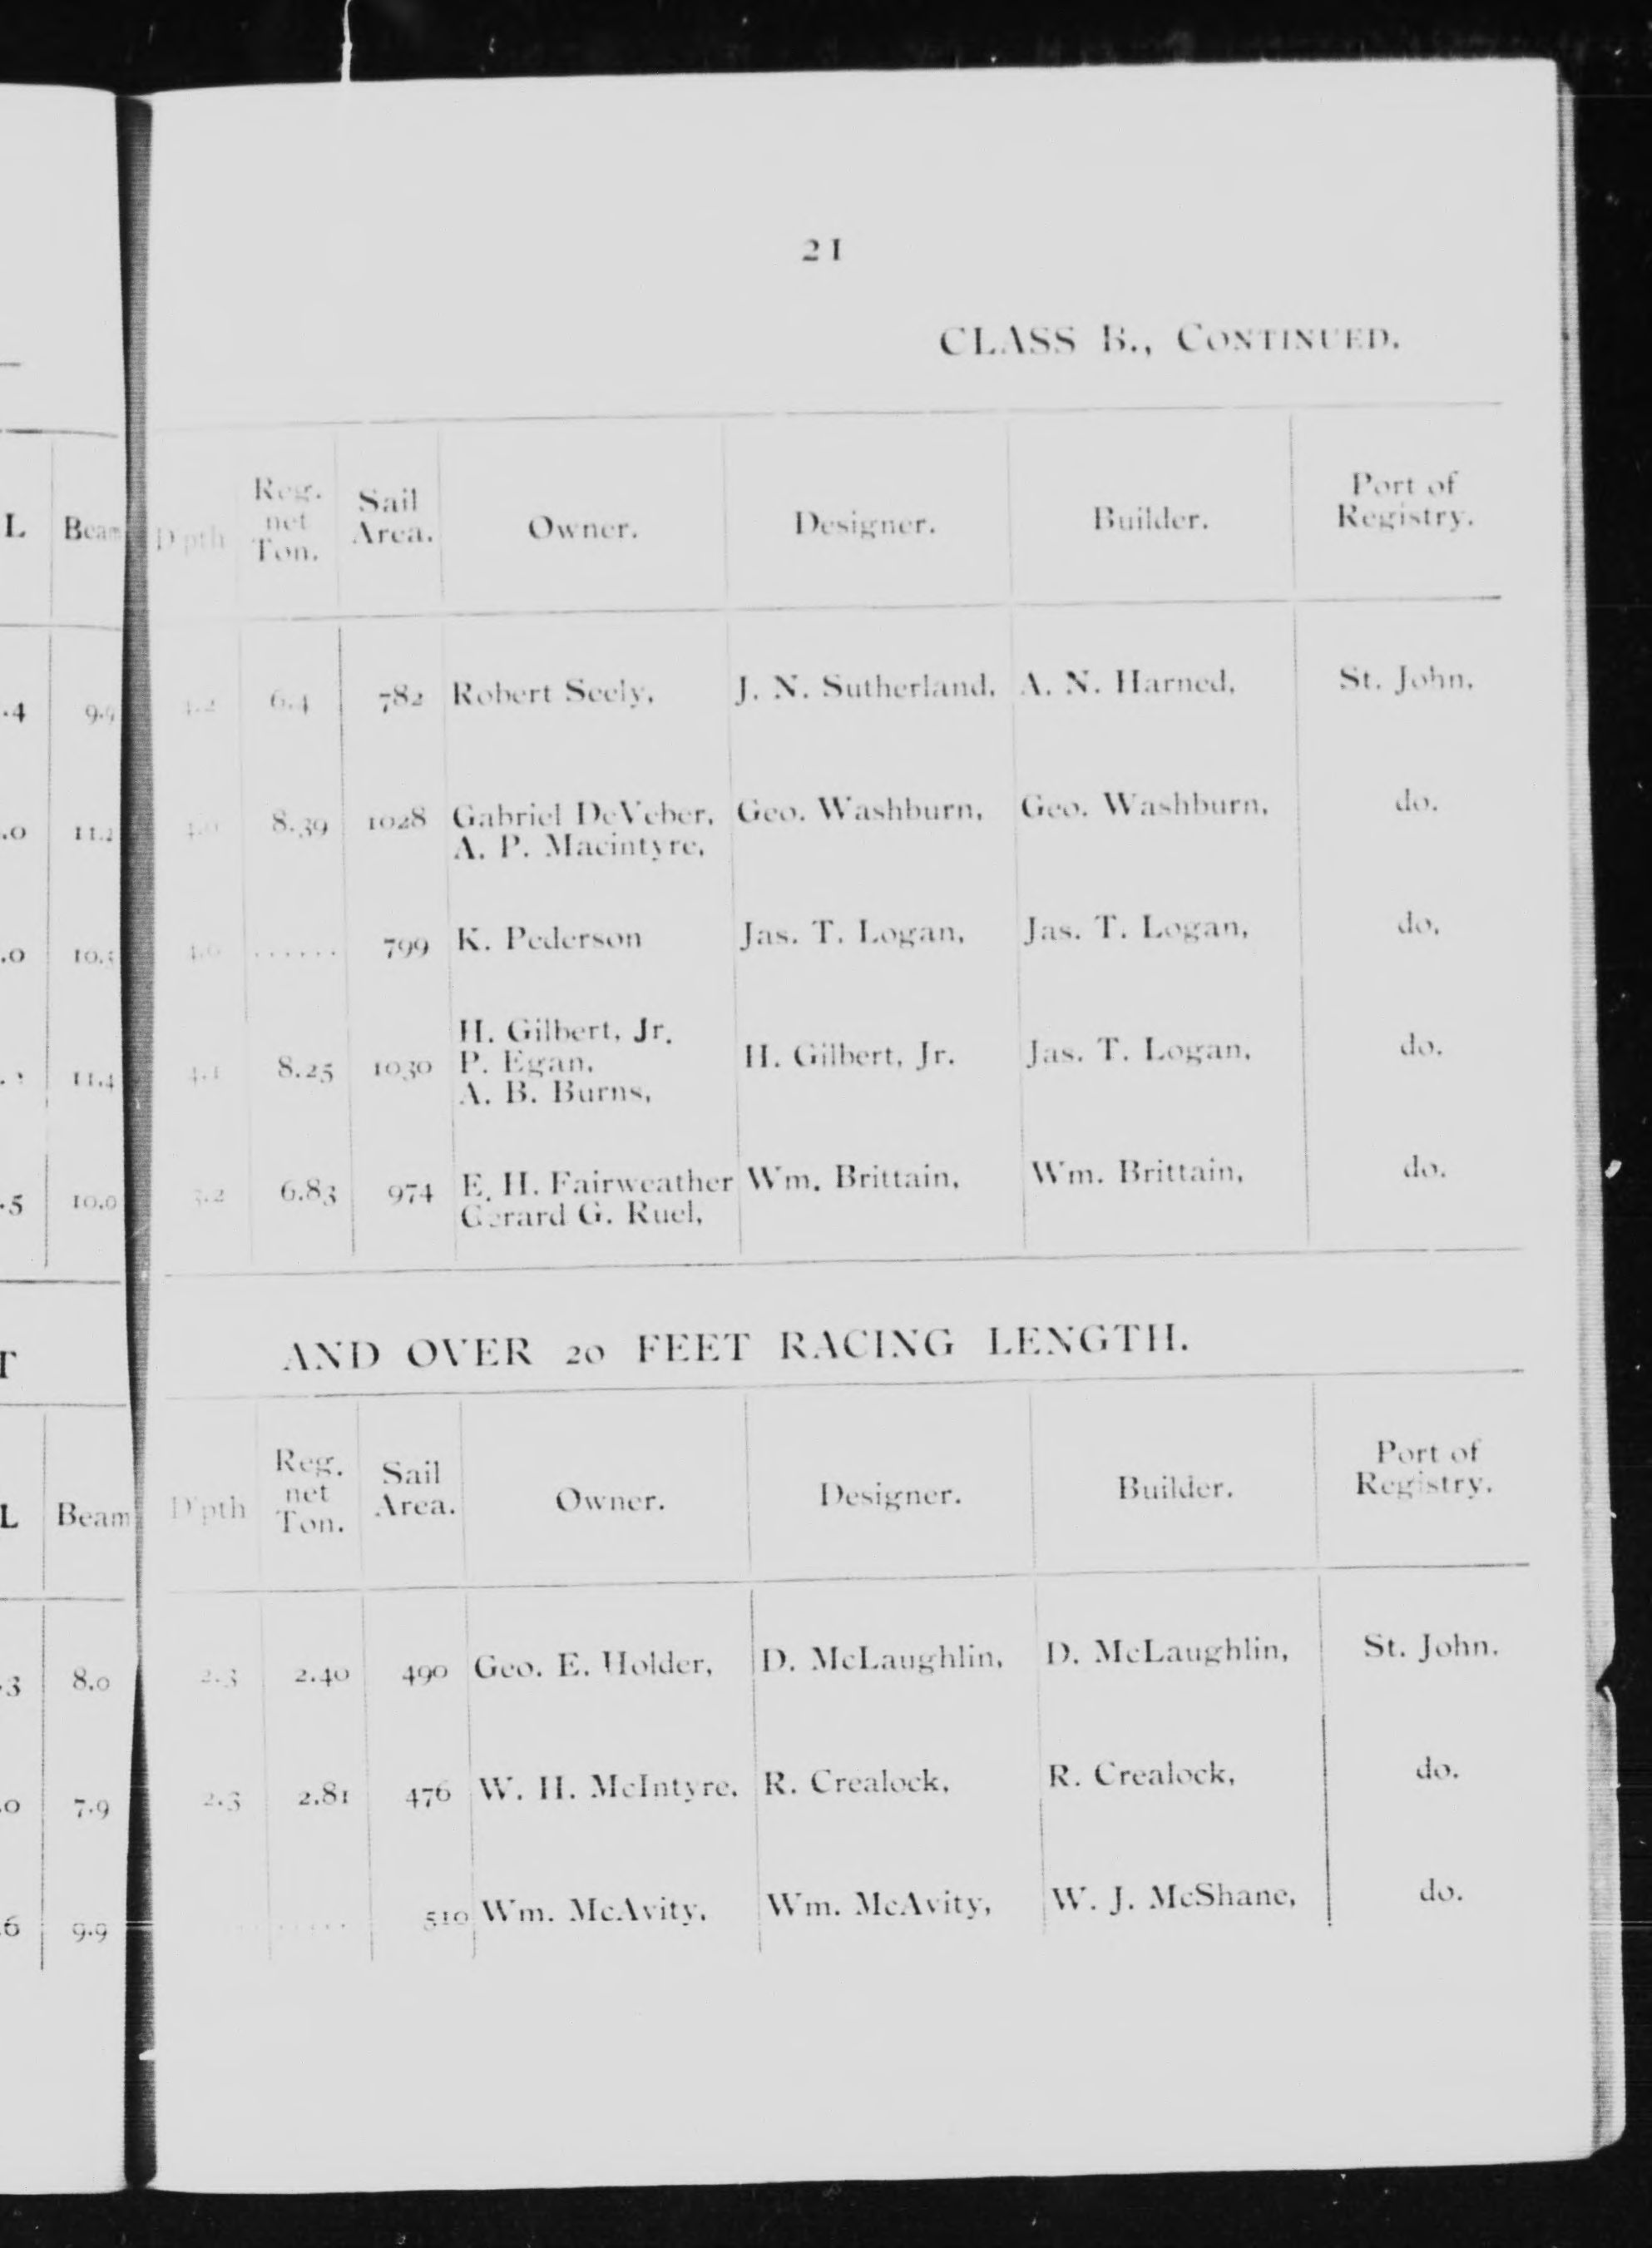 21
CLASS B., CONTINUED.
L Beam D'pth Reg. net Ton. Sail Area. Owner. Designer. Builder. Port of Registry.
.4 9.9 4.2 6.4 782 Robert Seely, J. N. Sutherland, A. N. Harned, St. John.
.0 11.2 8.39 1028 Gabriel DeVeber, Geo. Washburn, Geo. Washburn, do.
A. P. Macintyre,
.0 4.0 ...... 799 K. Pederson Jas. T. Logan, Jas. T. Logan, do.
H. Gilbert, Jr.
11.4 4.1 8.25 1030 P. Egan, H. Gilbert, Jr. Jas. T. Logan, do.
A. B. Burns,
.5 10.0 6.83 974 E. H. Fairweather Wm. Brittain, Wm. Brittain, do.
Gerard G. Ruel,
T
AND OVER 20 FEET RACING LENGTH.
L Beam D'pth Reg. net Ton. Sail Area. Owner. Designer. Builder. Port of Registry.
.3 8.0 2.3 2.40 490 Geo. E. Holder, D. McLaughlin, D. McLaughlin, St. John.
.0 7.9 2.3 2.81 476 W. H. McIntyre, R. Crealock, R. Crealock, do.
.6 9.9 ...... 510 Wm. McAvity, Wm. McAvity, W. J. McShane, do.